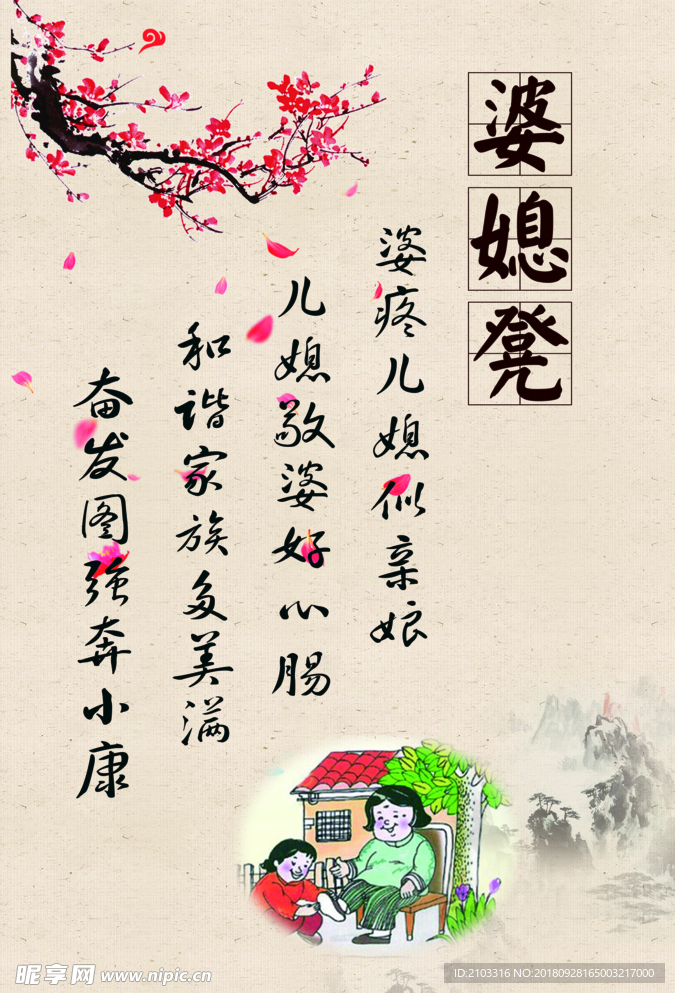 婆媳凳
婆疼儿媳似亲娘
儿媳敬婆好心肠
和谐家族多美满
奋发图强奔小康
昵享网 www.nipic.cn
ID:2103316 NO:20180928165003217000